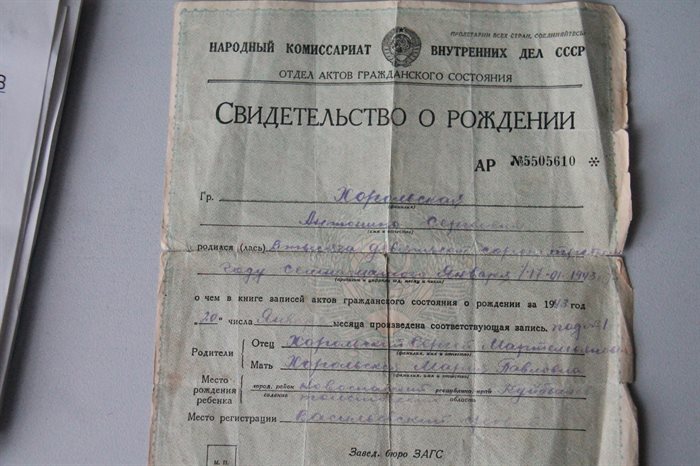 ПРОЛЕТАРИИ ВСЕХ СТРАН, СОЕДИНЯЙТЕСЬ!
НАРОДНЫЙ КОМИССАРИАТ ВНУТРЕННИХ ДЕЛ СССР
ОТДЕЛ АКТОВ ГРАЖДАНСКОГО СОСТОЯНИЯ
СВИДЕТЕЛЬСТВО О РОЖДЕНИИ
АР №5505610 *
Гр. Хорольская
(фамилия)
Антонина Сергеевна
(имя и отчество)
родился (лась) в тысяча девятьсот сорок третьем
году семнадцатого Января / 17-01 1943
(прописью и цифрами год, месяц и число)
о чем в книге записей актов гражданского состояния о рождении за 1943 год
20 числа Янв месяца произведена соответствующая запись под №1
Родители
Отец Хорольский Сергей
(фамилия, имя и отчество)
Мать Хорольская Мария Павловна
(фамилия, имя и отчество)
Место рождения ребенка
город, район
селение
республика, край
область
Место регистрации Васильевский
Завед. бюро ЗАГС
М. П.
8